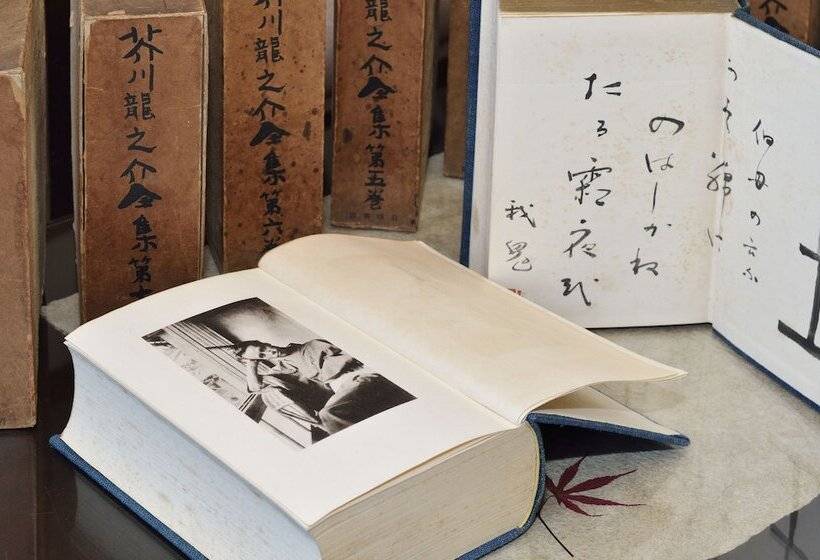 芥川龍之介全集第
芥川龍之介全集第六巻
龍之介全集第五巻
伯母の
うす綿は
のはしかね
たる霜夜哉
我鬼